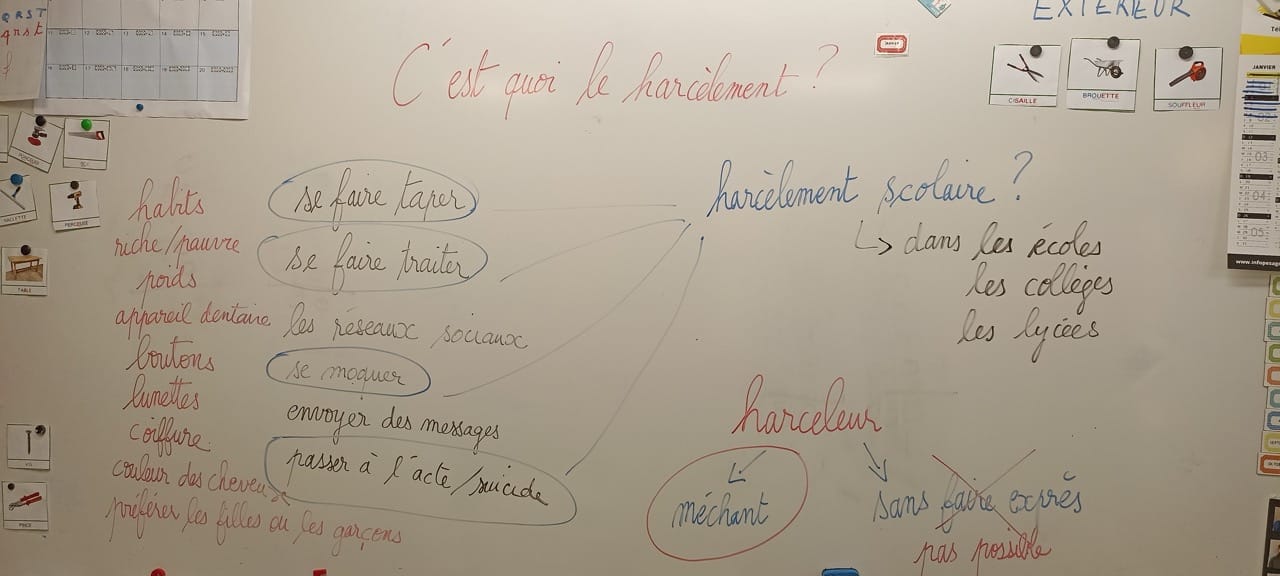 QRST
qrst
EXTÉRIEUR
C'est quoi le harcèlement ?
CISAILLE
BROUETTE
SOUFFLEUR
JANVIER
PONCEUSE
SCIE
RACLETTE
PERCEUSE
TABLE
VIS
PINCE
habits
riche/pauvre
poids
appareil dentaire
boutons
lunettes
coiffure
couleur des cheveux
préférer les filles ou les garçons
se faire taper
se faire traiter
les réseaux sociaux
se moquer
envoyer des messages
passer à l'acte/suicide
harcèlement scolaire ?
↳ dans les écoles
les collèges
les lycées
harceleur
méchant
sans faire exprès
pas possible
03
04
05